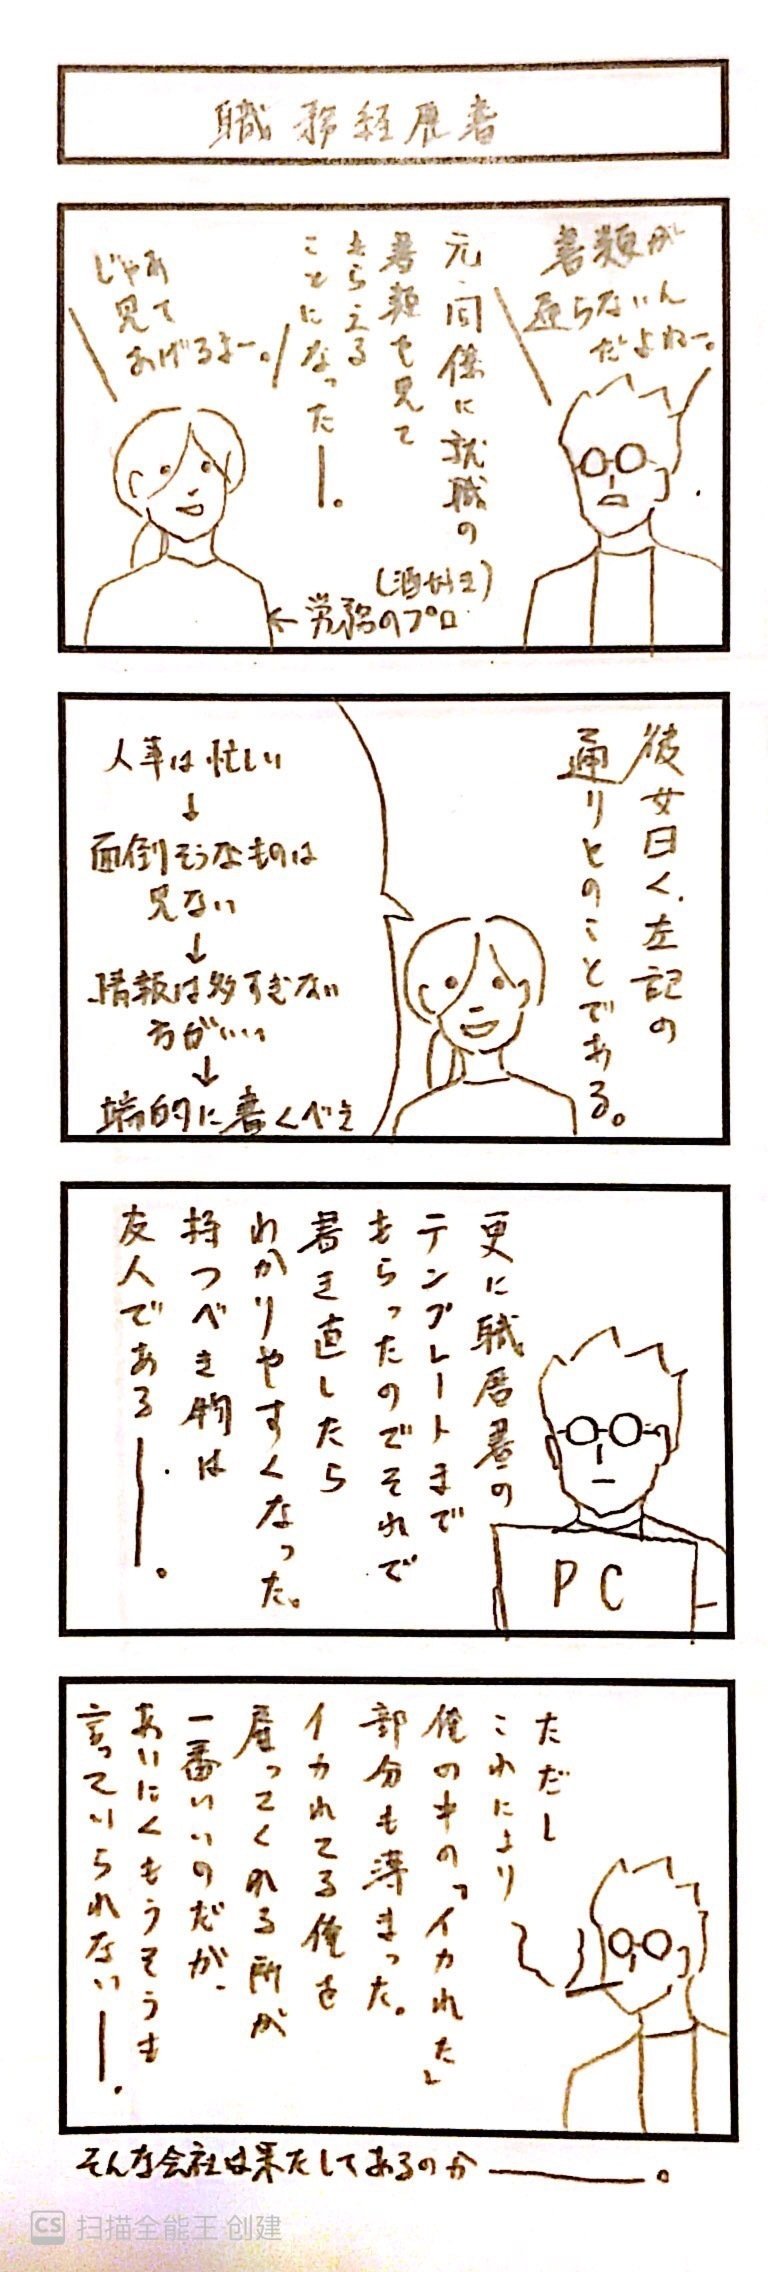 職務経歴書
書類が
通らないん
だよねー。
元・同僚に就職の
書類を見て
もらえる
ことになった―。
じゃあ
見て
あげるよー。
(酒好き)
←労務のプロ
彼女曰く、左記の
通りとのことである。
人事は忙しい
↓
面倒そうなものは
見ない
↓
情報は多すぎない
方がいい
↓
端的に書くべき
更に職歴書の
テンプレートまで
もらったのでそれで
書き直したら
わかりやすくなった。
持つべき物は
友人である―。
PC
ただし
これにより
俺の中の「イカれた」
部分も薄まった。
イカれてる俺を
雇ってくれる所が
一番いいのだが、
あいにくもうそうも
言っていられない―.
そんな会社は果たしてあるのか―。
CS 扫描全能王 创建